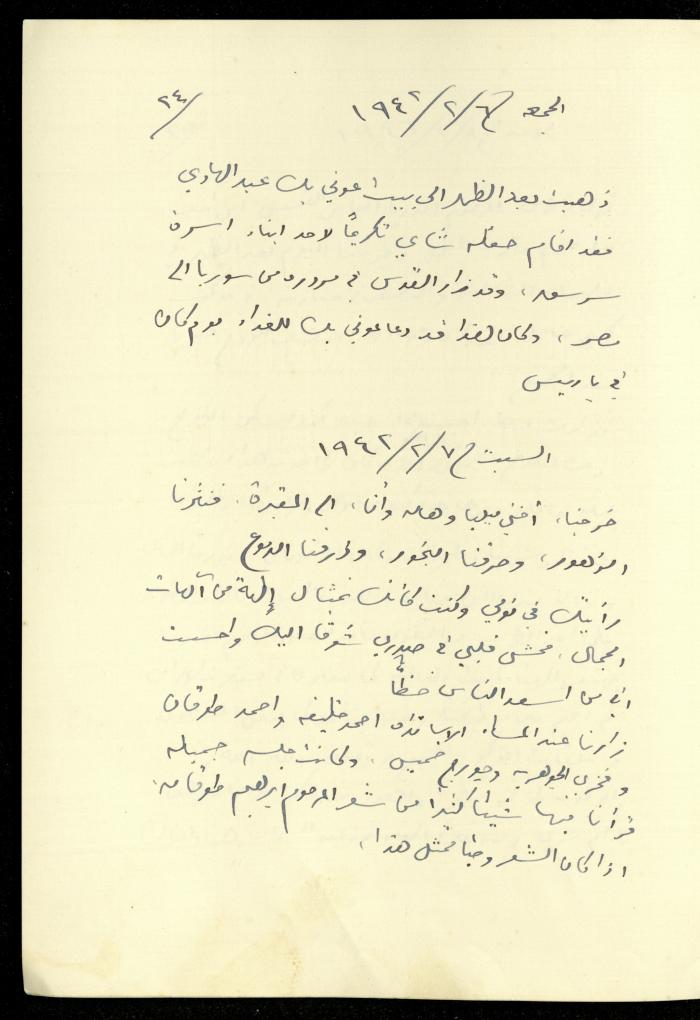 الجمعه ٦/٢/١٩٤٢ /٢٤
ذهبت بعد الظهر الى بيت عوني بك عبد الهادي
فقد اقام حفله شاي تكريماً لاحد ابناء اسرة
سرسق، وقد زار القدس في مروره من سوريا الى
مصر، وكان هذا قد دعا عوني بك للغداء يوم كان
في باريس
السبت ٧/٢/١٩٤٢
خرجنا، أختي ميليا وهاله وأنا، الى المقبرة. فنثرنا
الزهور، وحرقنا البخور، وذرفنا الدموع
رأيتك في نومي وكنت كأنك تمثال إلهة من آلهات
الجمال. فمشى قلبي في صدري شوقا اليك واحسست
اني من اسعد الناس حظاً
زارنا عند المساء الاساتذه احمد خليفه واحمد طوقان
وفخري الجوهريه وجورج خميس. وكانت جلسه جميله
قرأنا فيها شيئا كثيرا من شعر المرحوم ابرهيم طوقان.
اذا كان الشعر وطنا فمثل هذا.